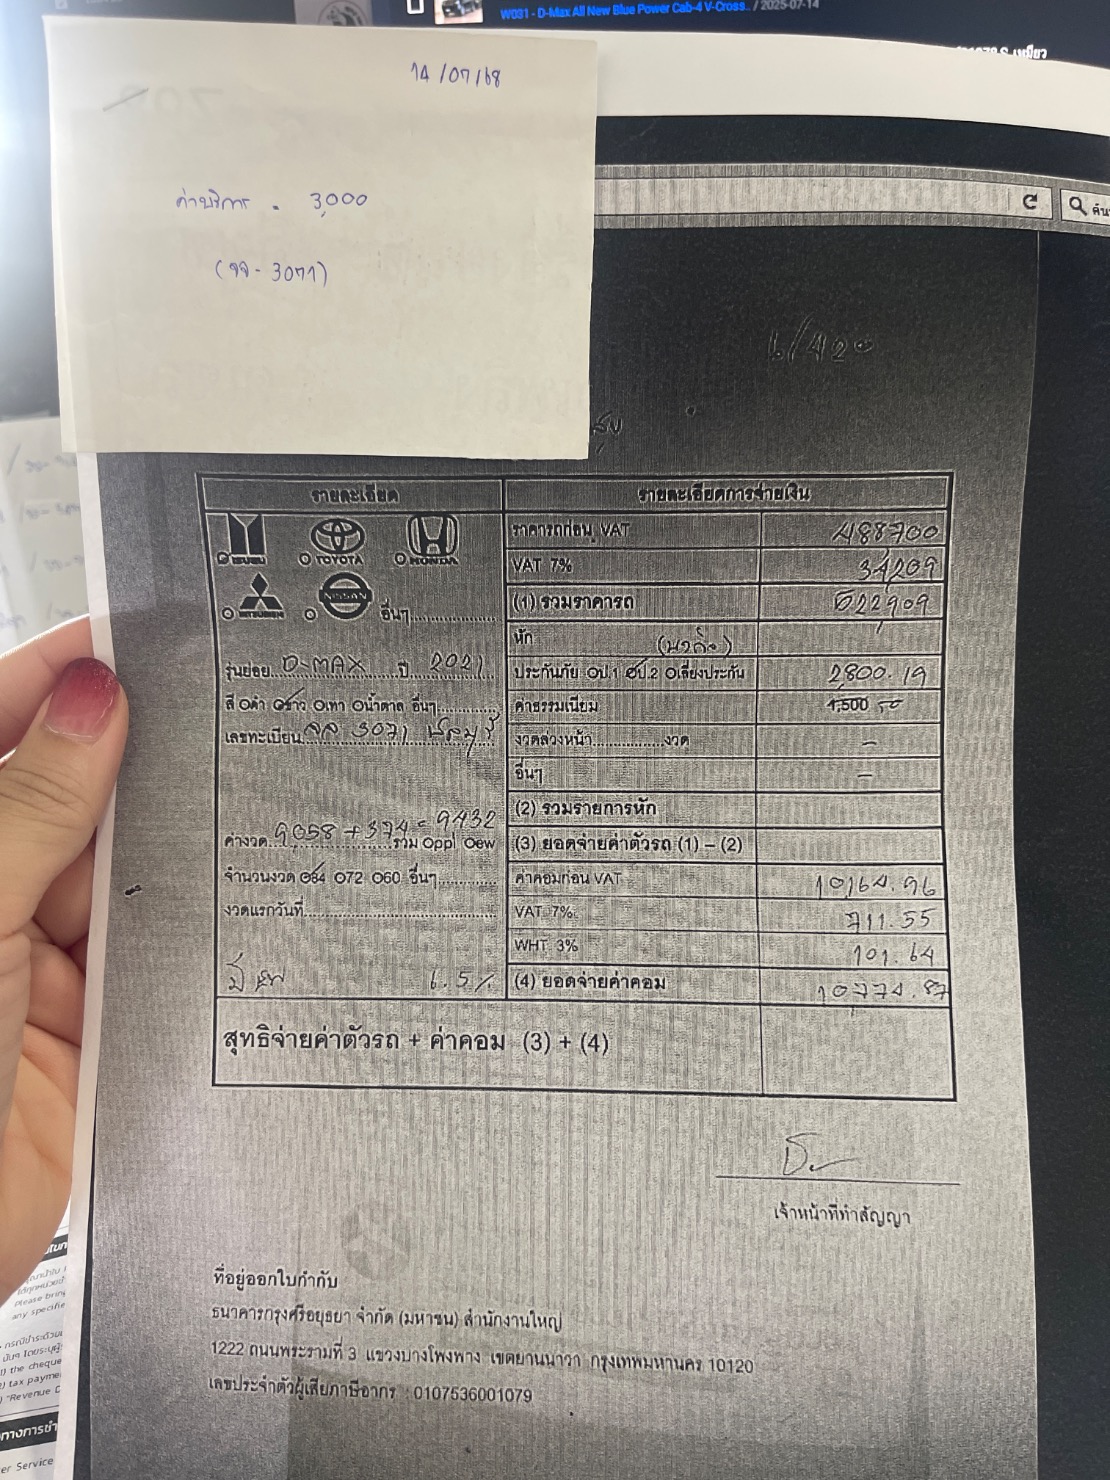 W031 - D-Max All New Blue Power Cab-4 V-Cross.. / 2025-07-14
14/07/68
ค่าบริการ = 3,000
(จจ - 3071)
ค้น
รายละเอียด
รายละเอียดการจ่ายเงิน
ISUZU TOYOTA HONDA
MITSUBISHI NISSAN อื่นๆ
รุ่นย่อย D-MAX ปี 2021
สี Oดำ Oขาว Oเทา Oน้ำตาล อื่นๆ
เลขทะเบียน จจ 3071 ชลบุรี
ค่างวด 9058 + 374 = 9432 รวม Oppl Oew
จำนวนงวด O84 O72 O60 อื่นๆ
งวดแรกวันที่
6.5%
ราคารถก่อน VAT 488700
VAT 7% 34,209
(1) รวมราคารถ 522,909
หัก
ประกันภัย Oป.1 Oป.2 Oเลี่ยงประกัน 2,800.19
ค่าธรรมเนียม 1,500
งวดล่วงหน้า งวด -
อื่นๆ -
(2) รวมรายการหัก
(3) ยอดจ่ายค่าตัวรถ (1) – (2)
ค่าคอมก่อน VAT 10,164.96
VAT 7% 711.55
WHT 3% 101.64
(4) ยอดจ่ายค่าคอม 10,774.87
สุทธิจ่ายค่าตัวรถ + ค่าคอม (3) + (4)
เจ้าหน้าที่ทำสัญญา
ที่อยู่ออกใบกำกับ
ธนาคารกรุงศรีอยุธยา จำกัด (มหาชน) สำนักงานใหญ่
1222 ถนนพระรามที่ 3 แขวงบางโพงพาง เขตยานนาวา กรุงเทพมหานคร 10120
เลขประจำตัวผู้เสียภาษีอากร : 0107536001079